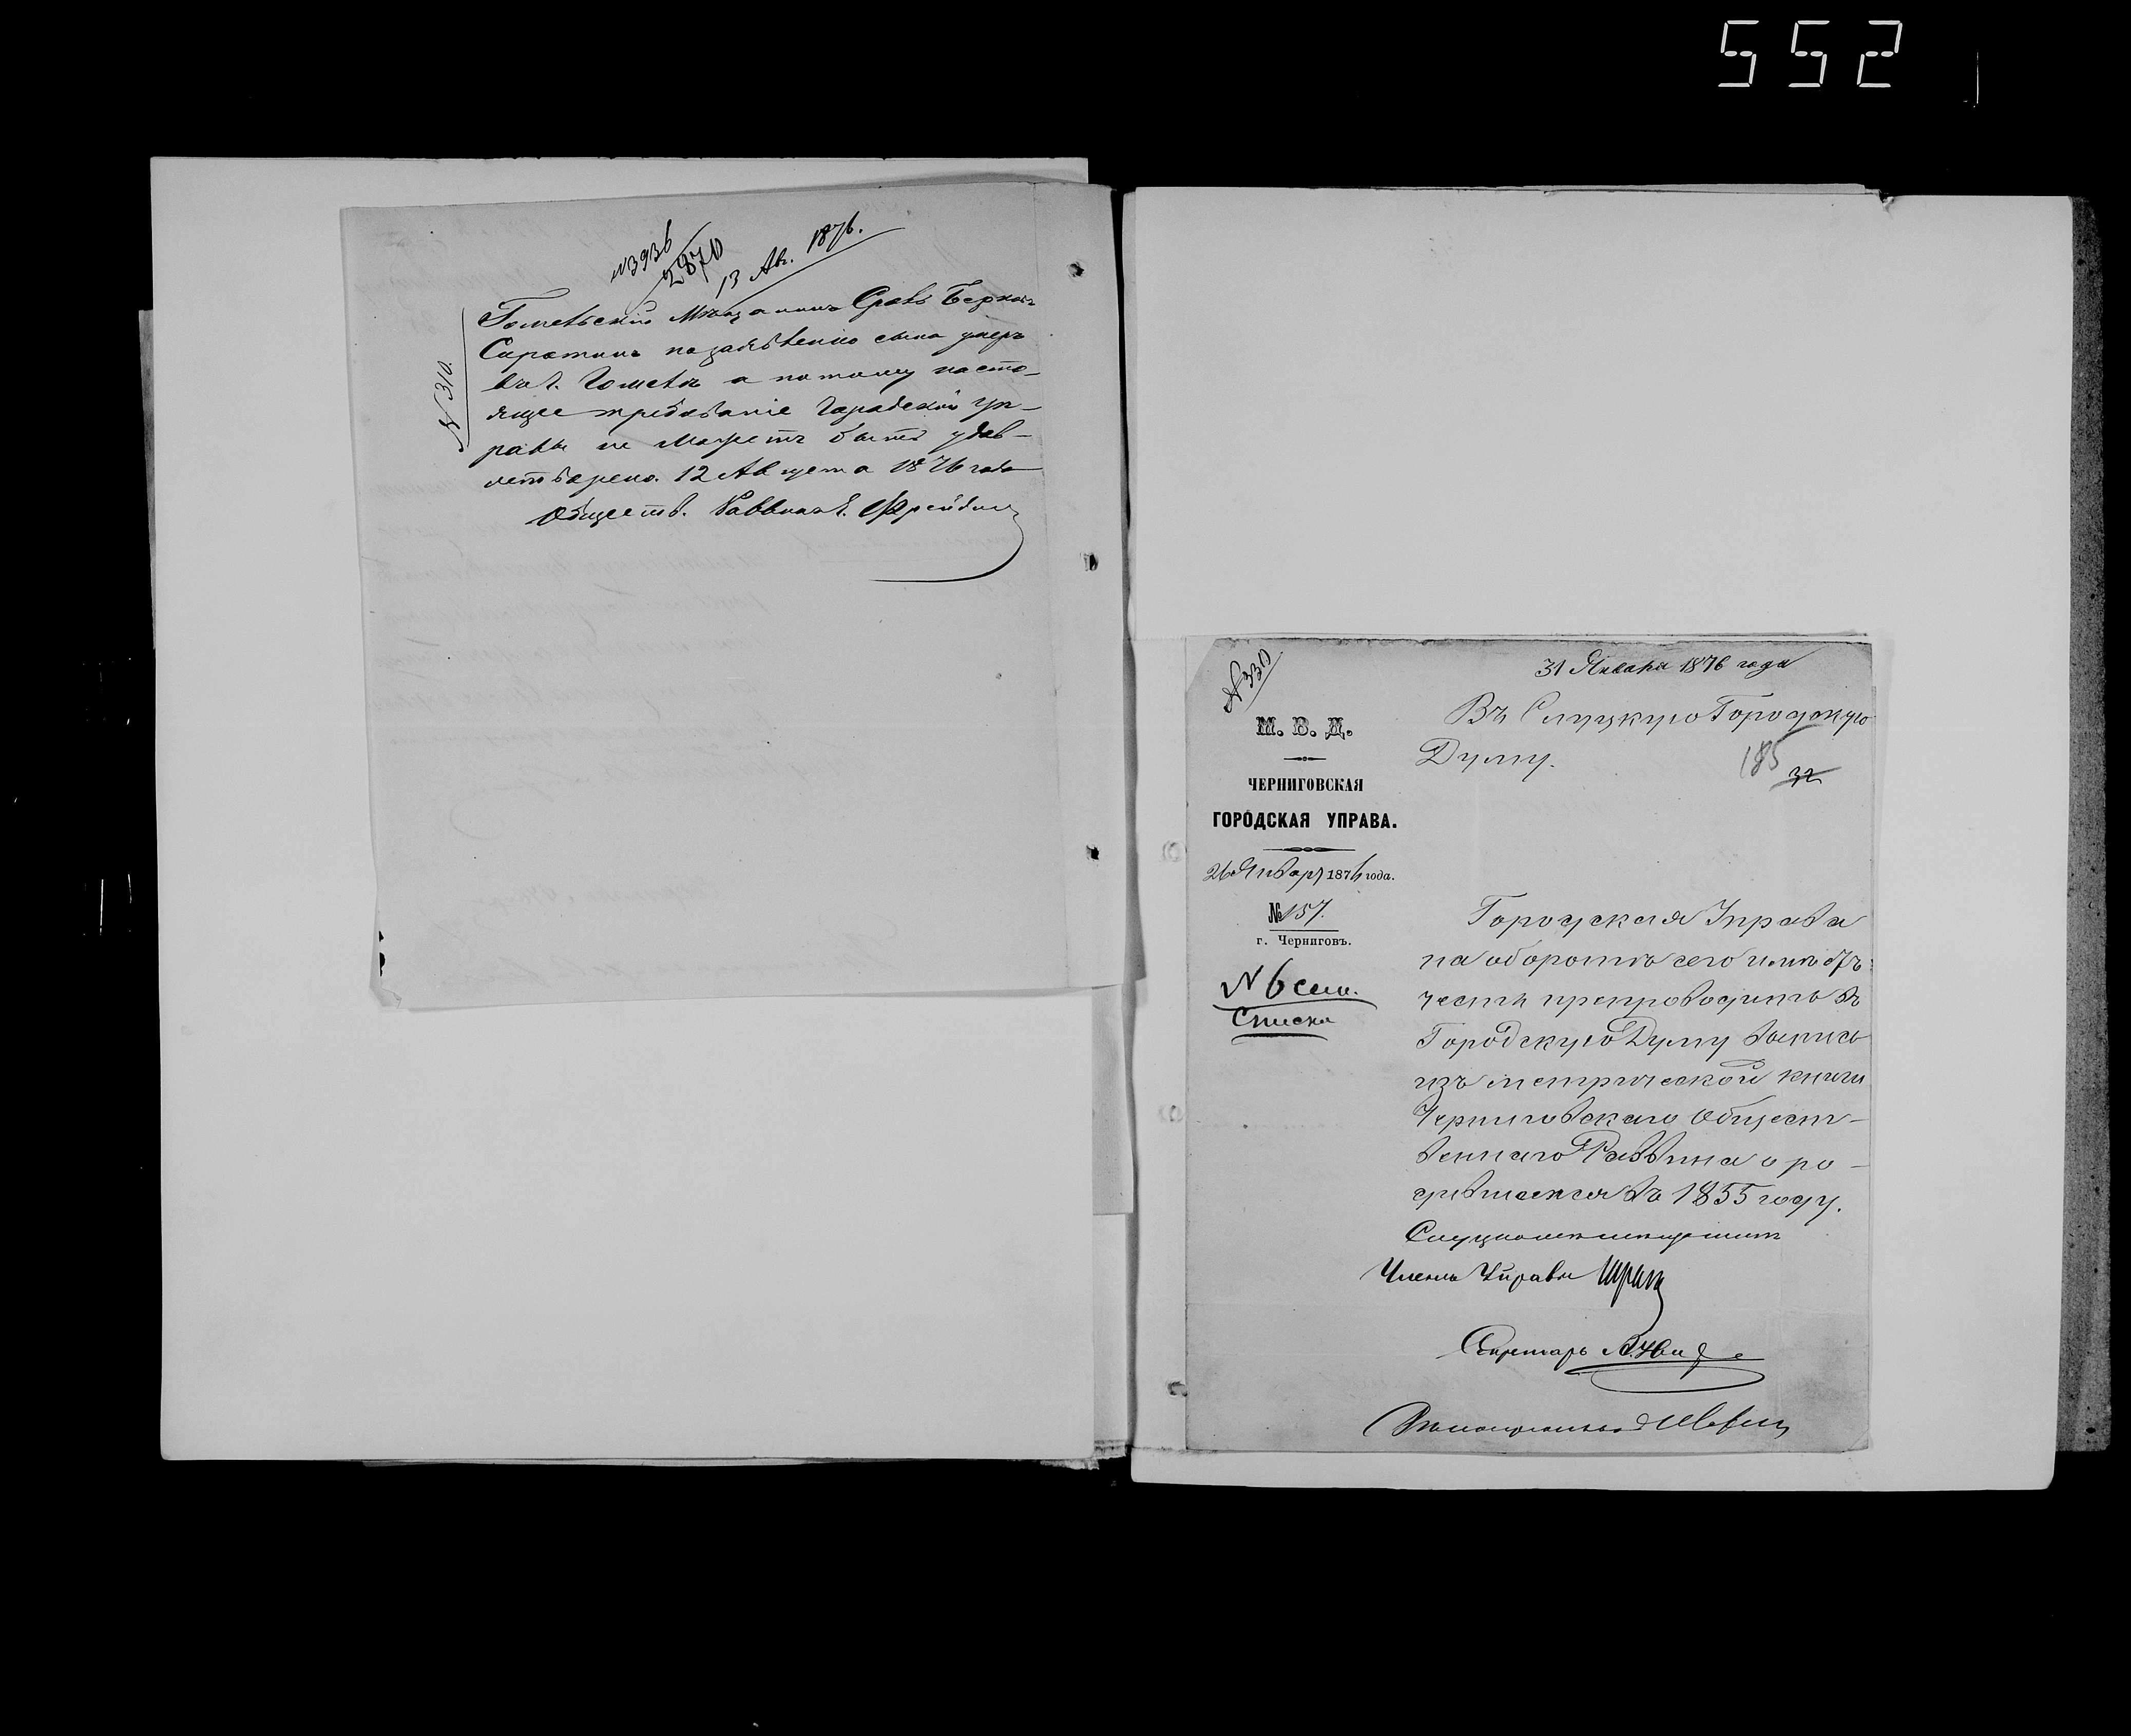 552
№ 3936
2870
13 Авг. 1876.
№ 310.
Гомельскій Мѣщанинъ Берков
Сиротинъ по заявленію сына умеръ
въ г. Гомелѣ а потому насто-
ящее требованіе Городской Уп-
равы не можетъ быть удов-
летворено. 12 Августа 1876 года
Обществ. Раввинъ Г. Фрейдин
№ 330
31 Января 1876 года
М. В. Д.
ЧЕРНИГОВСКАЯ
ГОРОДСКАЯ УПРАВА.
26 Января 1876 года.
№ 157.
г. Черниговъ.
N 6 сем.
Списки
Въ Слуцкую Городскую
Думу.
185
32
Городская Управа
на оборотѣ сего имѣетъ
честь препроводить въ
Городскую Думу выпись
изъ метрической книги
Черниговскаго Общест-
веннаго Раввина о ро-
дившемся въ 1855 году.
Слуцкомъ мѣщанинѣ
Членъ Управы
Секретарь